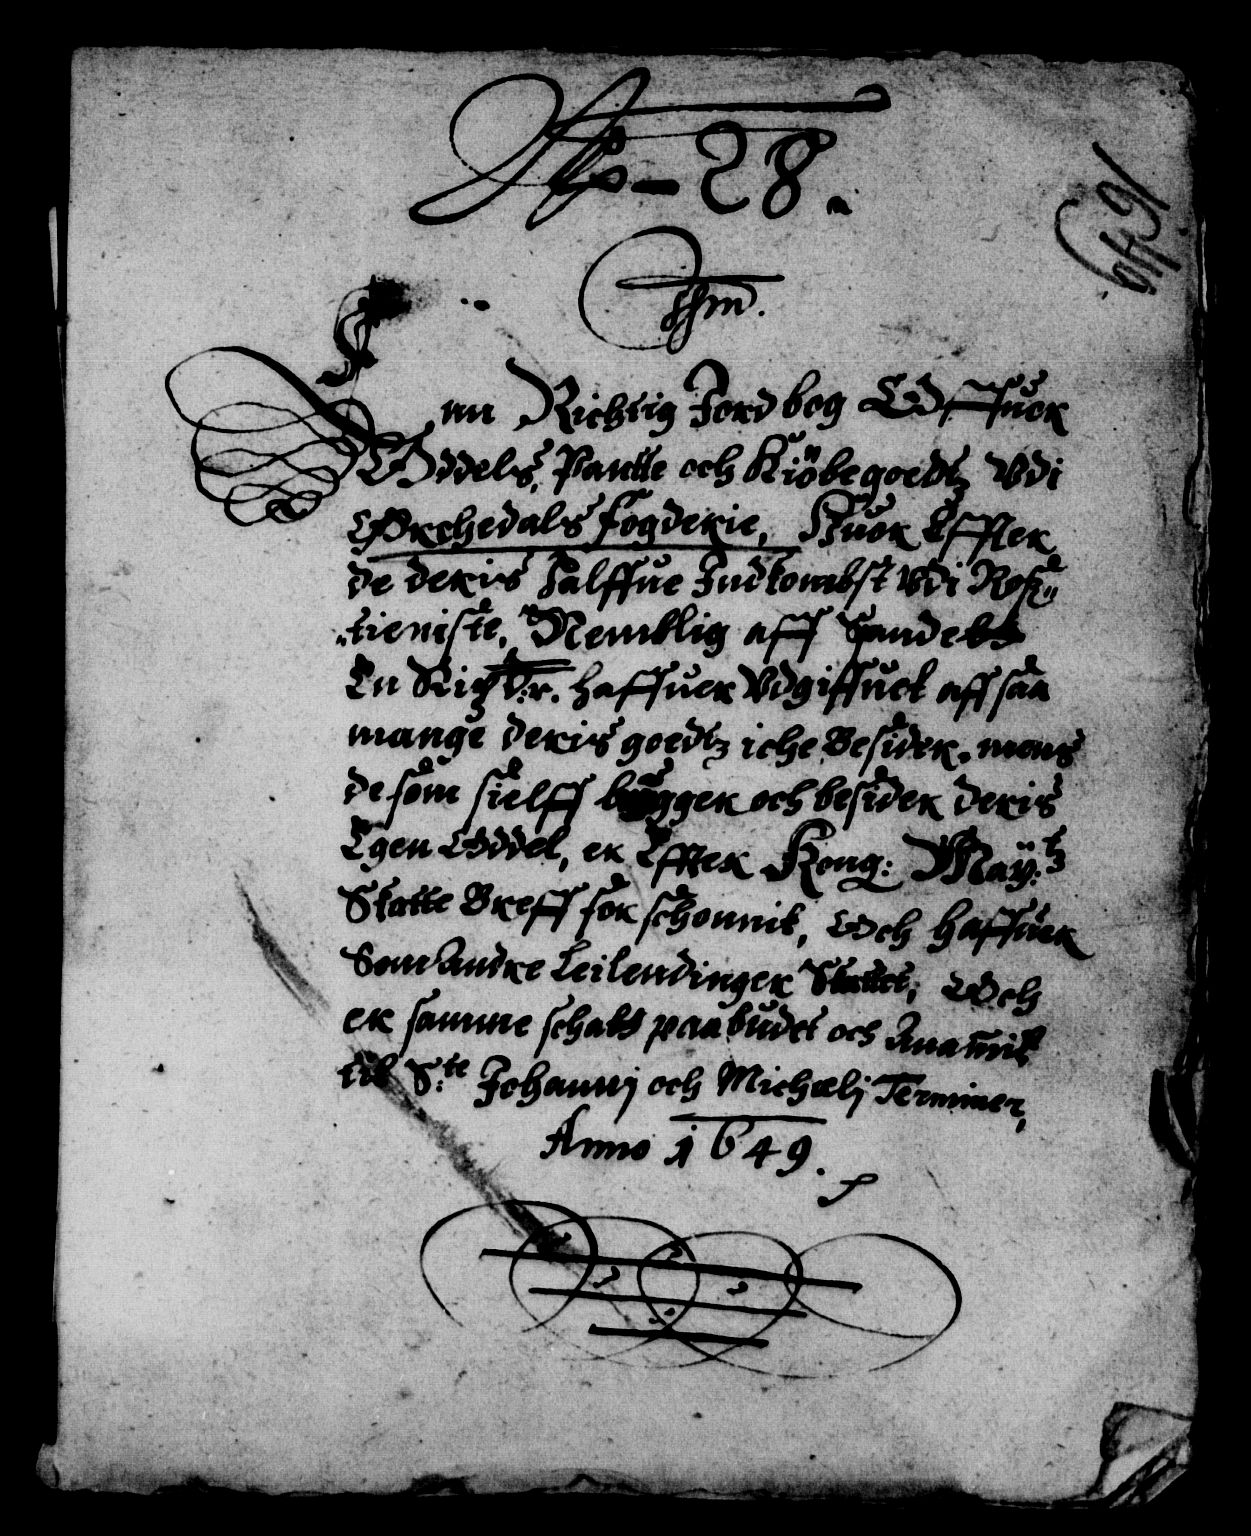 No – 28.
1649
Enn Richtig Jord bog Offuer
Oddels, Pantte och Kiöbegoedtz Udi
Ørchedals fogderie, Huor Effter
de deris Halffue Indkombst Udi Rosz„
„tieniste, Nemblig aff
En Rigsdr. haffuer Udgiffuet aff saa
mange deris goedtz iche Besider, mens
de som sielff bögger och besider deris
Egen Oddel, er Effter Kong: Maÿ:tz
Skatte Breff forschonnit, Och haffuer
Som Andre Leilendinger Skattet, Och
er samme schatt paabudet och Anammit
till S:te Johannj och Michælj Terminer,
Anno 1649.